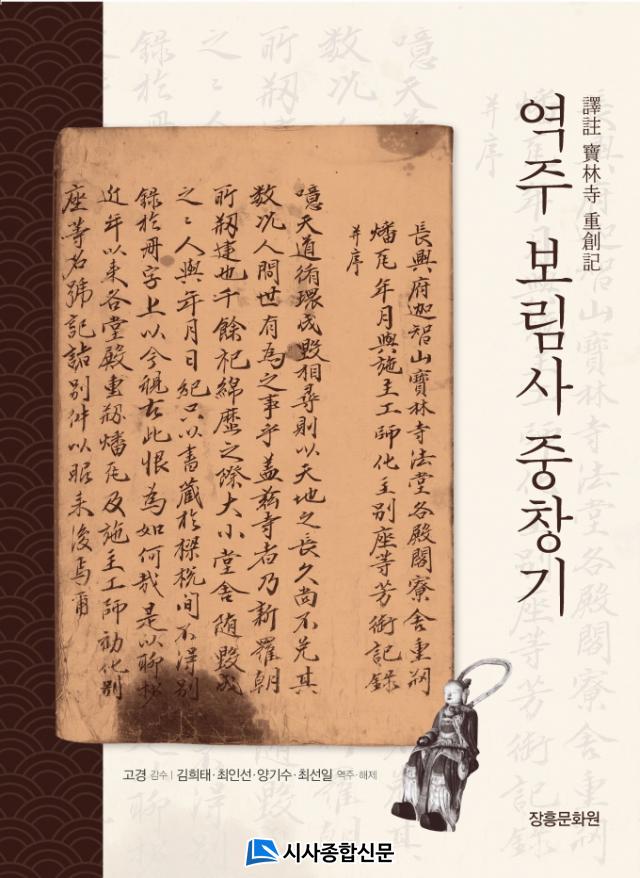 譯註 寶林寺 重創記
역주 보림사 중창기
長興府迦智山寶林寺法堂各殿閣寮舍重刱
燔瓦年月與施主工師化主別座等芳啣記錄
并序
噫天道循環成毁相尋則以天地之長久尚不免其
数况人間世有為之事乎盖玆寺者乃新羅朝
所刱建也千餘祀綿歷之際大小堂舍随毁成
之之人與年月日紀只以書藏於樑梲间不得别
錄於冊字上以今視古此恨為如何哉是以聊
近年以来各堂殿重刱燔瓦及施主工師勧化别
座等名號記諸别件以眎来後焉爾
고경 감수 | 김희태·최인선·양기수·최선일 역주·해제
장흥문화원
시사종합신문